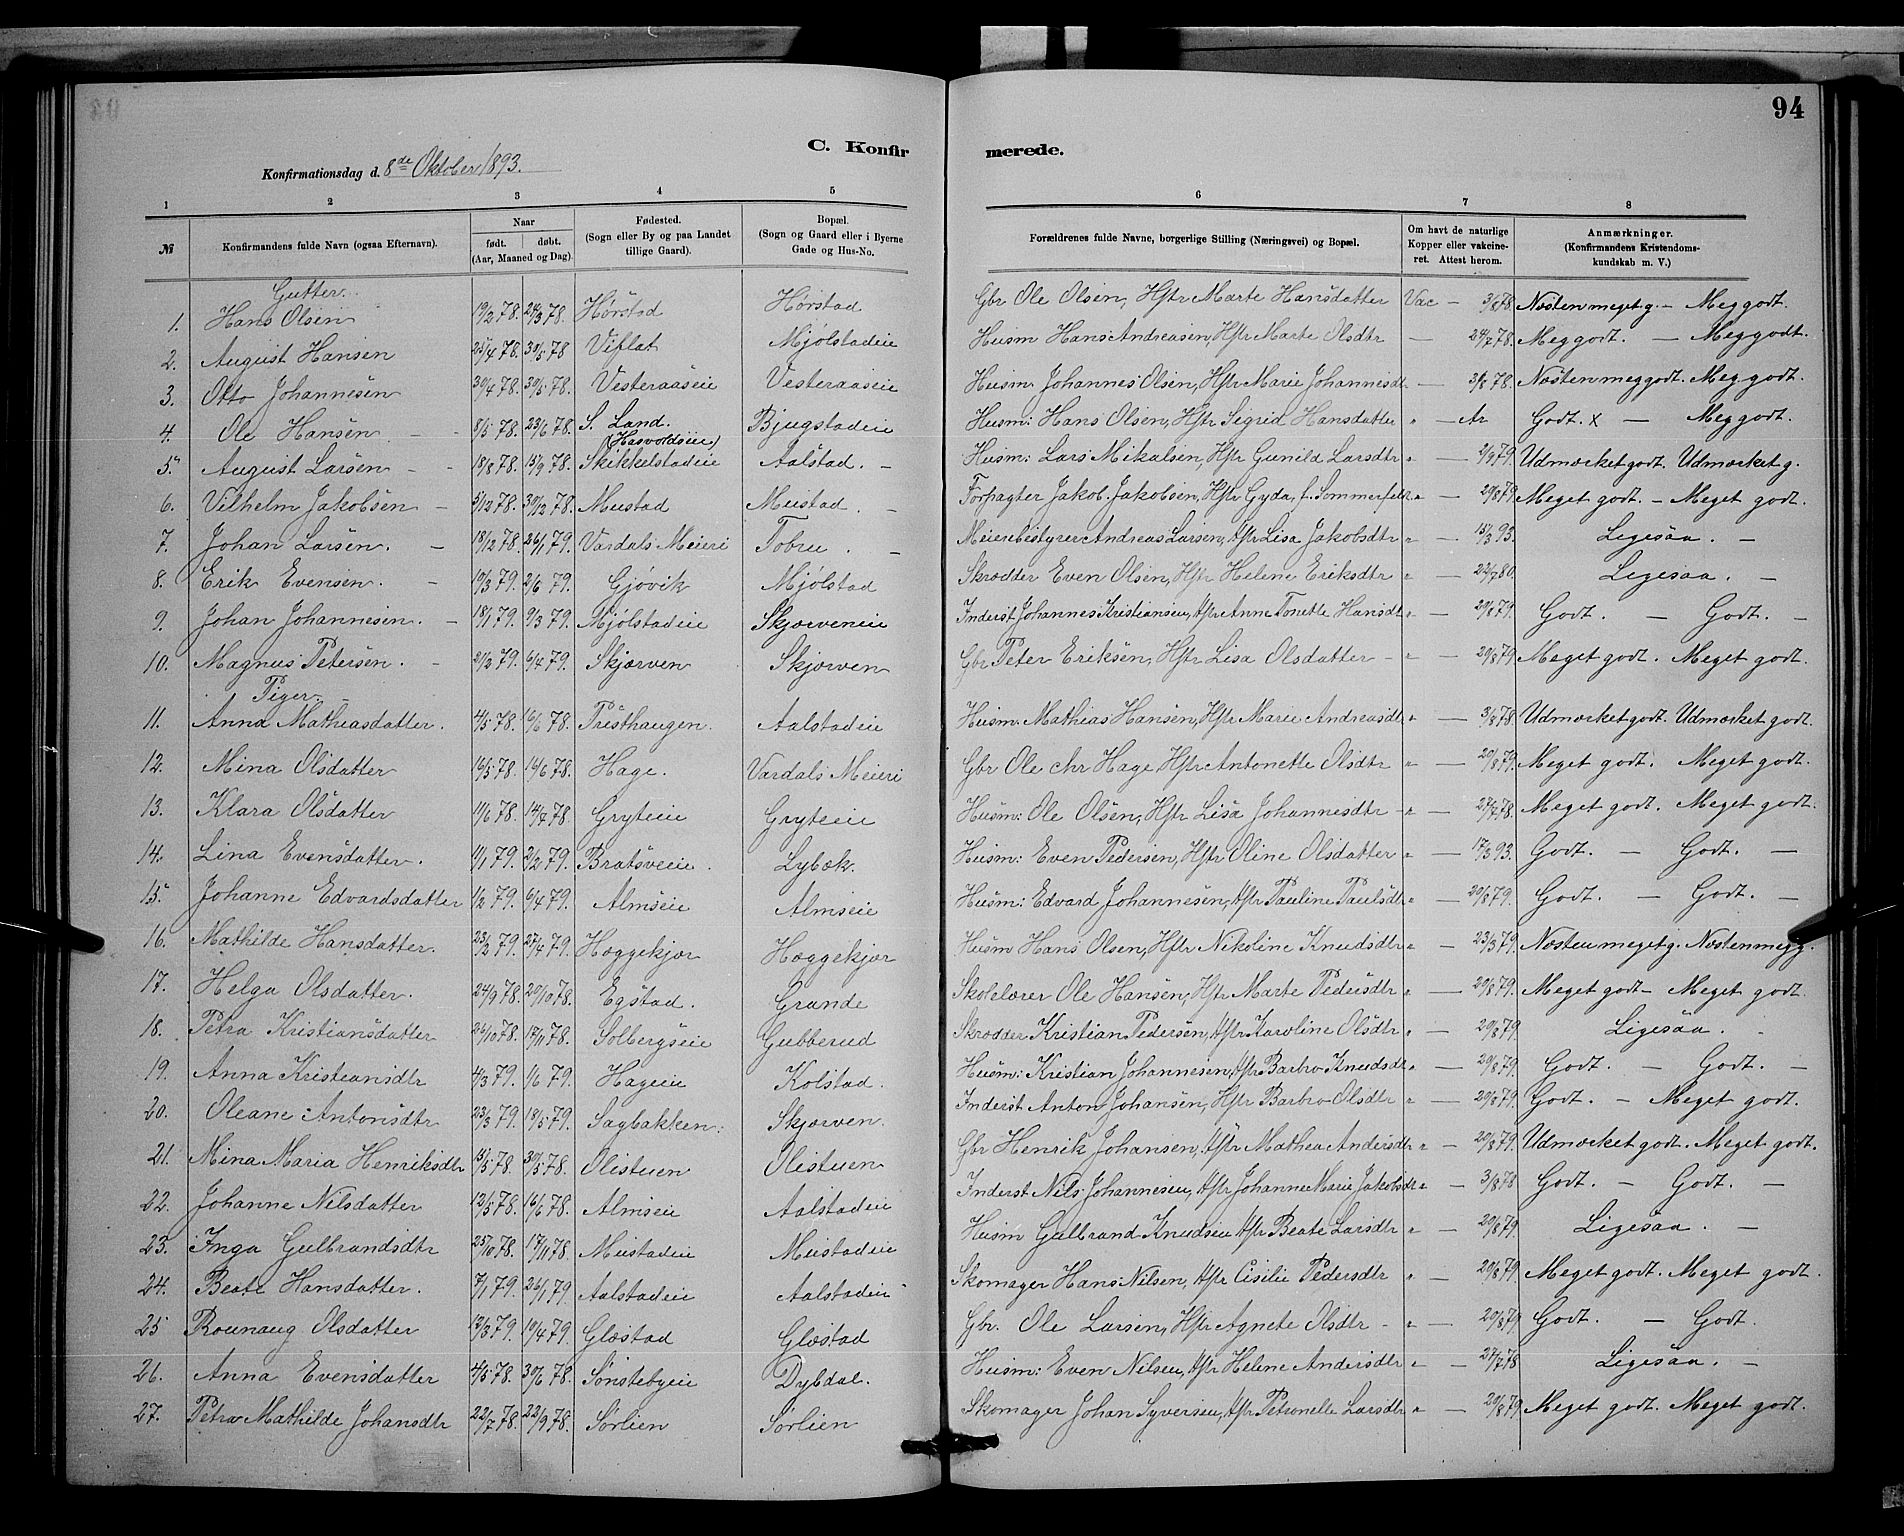 94
C. Konfirmerede.
Konfirmationsdag d. 8de Oktober 1893.
1 2 3 4 5 6 7 8
№ Konfirmandens fulde Navn (ogsaa Efternavn). Naar født. døbt. (Aar, Maaned og Dag). Fødested. (Sogn eller By og paa Landet tillige Gaard). Bopæl. (Sogn og Gaard eller i Byerne Gade og Hus-No. Forældrenes fulde Navne, borgerlige Stilling (Næringsvei) og Bopæl. Om havt de naturlige Kopper eller vakcineret. Attest herom. Anmærkninger. (Konfirmandens Kristendomskundskab m. V.)
Gutter.
1. Hans Olsen 19/2 78. 24/3 78. Hørstad Hørstad Gbr Ole Olsen, Hstr Marte Hansdatter Vac — 3/8 78. Næsten meget g. — Meg godt.
2. August Hansen 25/4 78. 30/5 78 Viflat Mjølstadeie Husm Hans Andreasen, Hstr Marte Olsdtr — 24/7 78. Meg godt. — Meg godt.
3. Otto Johannesen 30/4 78. 30/5 78. Vesteraaseie Vesteraaseie Husm. Johannes Olsen, Hstr Marie Johannesdt — 3/8 78. Næsten meg godt. Meg godt.
4. Ole Hansen 8/5 78. 23/6 78. S. Land. (Hasvoldseie) Bjugstadeie Husm: Hans Olsen, Hstr Sigrid Hansdatter " — Ar Godt. x — Meg godt.
5. August Larsen 18/8 78. 15/9 78. Skikkelstadeie Aalstad. Husm: Lars Mikalsen, Hstr Gunild Larsdtr " — 2/9 79. Udmærket godt. Udmærket g.
6. Vilhelm Jakobsen 5/12 78. 30/12 78. Mustad Mustad. Forpagter Jakob Jakobsen, Hstr Gyda, f. Sommerfelt " 20/8 79. Meget godt. — Meget godt.
7. Johan Larsen. 18/12 78. 26/1 79. Vardals Meieri Tobru. Meieribestyrer Andreas Larsen, Hstr Lisa Jakobsdtr " — 15/3 93. Ligesaa. —
8. Erik Evensen. 19/3 79. 2/6 79. Gjøvik Mjølstad Skrædder Even Olsen, Hstr Helene Eriksdtr " — 22/7 80. Ligesaa. —
9. Johan Johannesen. 18/1 79. 9/3 79. Mjølstadeie Skjærveneie Inderst Johannes Kristiansen, Hstr Anne Tonette Hansdt " — 20/8 79. Godt. — Godt. —
10. Magnus Petersen. 21/2 79. 6/4 79. Skjærven Skjærven Gbr Peter Eriksen, Hstr Lisa Olsdatter — " — 20/8 79. Meget godt. Meget godt.
Piger.
11. Anna Mathiasdatter. 4/5 78. 16/6 78. Præsthaugen. Aalstadeie Husm. Mathias Hansen, Hstr Marie Andreasdtr " — 3/8 78 Udmærket godt. Udmærket godt.
12. Mina Olsdatter 16/5 78. 16/6 78. Hage. Vardals Meieri Gbr Ole Chr Hage, Hstr Antonette Olsdtr " — 20/8 79. Meget godt. Meget godt.
13. Klara Olsdatter 11/6 78. 14/7 78 Gryteeie Gryteeie Husm: Ole Olsen, Hstr Lisa Johannesdtr — " — 27/7 78. Meget godt. Meget godt.
14. Lina Evensdatter. 11/1 79. 2/2 79. Bratsveeie. Lybæk. Husm: Even Pedersen, Hstr Oline Olsdatter " — 17/3 93. Godt. — Godt. —
15. Johanne Edvardsdatter 1/2 79. 6/4 79. Almseie Almseie Husm: Edvard Johannesen, Hstr Pauline Paulsdtr " — 20/8 79. Godt. — Godt. —
16. Mathilde Hansdatter. 23/2 79. 27/4 79. Hæggekjær Hæggekjær Husm Hans Olsen, Hstr Nikoline Knudsdtr " — 23/3 79. Næsten meget g. Næsten meg g.
17. Helga Olsdatter. 24/9 78. 20/10 78. Egstad. Grande Skolelærer Ole Hansen, Hstr Marte Pedersdtr " — 20/8 79. Meget godt — Meget godt.
18. Petra Kristiansdatter 26/10 78. 17/11 78. Solbergseie Gubberud Skrædder Kristian Pedersen, Hstr Karoline Olsdtr " — 20/8 79. Ligesaa.
19. Anna Kristiansdtr 4/3 79. 1/6 79. Hageeie Kolstad. Husm: Kristian Johannesen, Hstr Barbro Knudsdtr " — 20/8 79. Godt. — Godt. —
20. Oleane Antonsdtr 23/3 79. 18/5 79. Sagbakken. Skjærven. Inderst Anton Johansen, Hstr Barbro Olsdtr " — 20/8 79. Godt. — Meget godt.
21. Mina Maria Henriksdtr 15/5 78. 30/5 78. Olistuen Olistuen Gbr Henrik Johansen, Hstr Mathea Andersdtr " — 20/8 79. Udmærket godt. Meget godt.
22. Johanne Nilsdatter 13/5 78. 16/6 78. Almseie Aalstadeie Inderst Nils Johannesen, Hstr Johanne Marie Jakobsdtr " — 3/8 78 Godt. — Godt. —
23. Inga Gulbrandsdtr 25/10 78. 17/11 78. Mustadeie Mustadeie Husm Gulbrand Knudsen Hstr Beate Larsdtr " — 20/8 79. Ligesaa. —
24. Beate Hansdatter. 7/1 79. 26/1 79. Aalstadeie Aalstadeie Skomager Hans Nilsen, Hstr Cisilie Pedersdtr " — 20/8 79. Meget godt. Meget godt.
25 Rounaug Olsdatter 13/3 79. 10/4 79. Glæstad Glæstad Gbr. Ole Larsen, Hstr Agnete Olsdtr — " — 20/8 79 Godt. — Godt.
26. Anna Evensdatter 4/5 78. 30/6 78. Sønstebyeie Dybdal. Husm: Even Nilsen, Hstr Helene Andersdtr " — 27/7 78 Ligesaa. —
27. Petra Mathilde Johansdtr 22/7 78. 22/9 78. Sørlien Sørlien Skomager Johan Syversen, Hstr Petronelle Larsdtr " — 20/8 79 Meget godt. Meget godt.